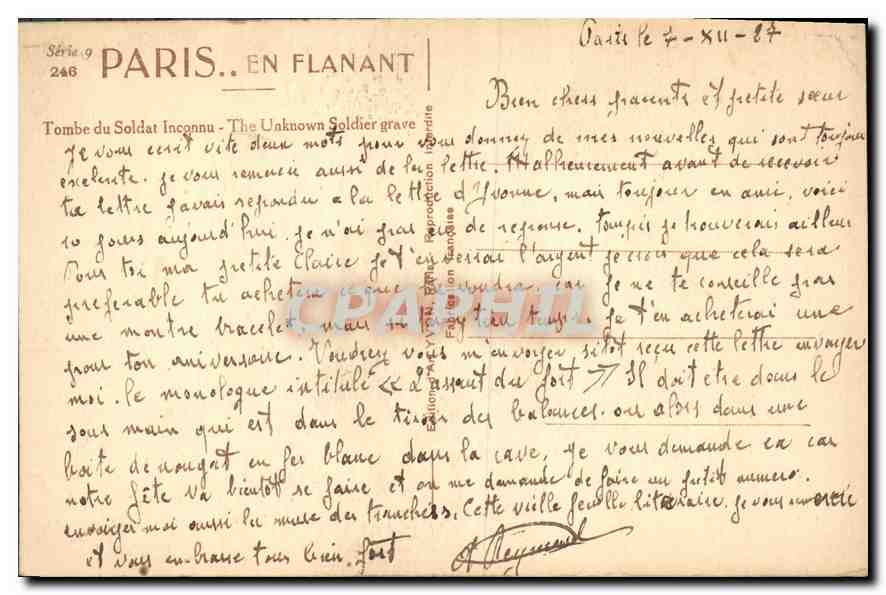 Série 9
246
PARIS.. EN FLANANT
Tombe du Soldat Inconnu - The Unknown Soldier grave
Editions d'Art YVON, Paris. Reproduction Interdite
Fabrication Française
Paris le 7-XII-27
Bien chers parents et petite sœur
Je vous ecrit vite deux mots pour vous donner de mes nouvelles qui sont toujour
exelente. je vous remercie aussi de la lettre. Malheureusement avant de recevoir
ta lettre j'avais repondu a la lettre d'Yvonne, mais toujour en ami, voici
10 jours aujourd'hui je n'ai pas de reponse. tanpis je trouverais ailleur
Pour toi ma petite Claire je t'enverrai l'argent je crois que cela sera
preferable tu achetera ce que tu voudra, car je ne te conseille pas
une montre bracelet, mais si tu y tien toujour je t'en acheterai une
pour ton aniversaire. Voudrez vous m'envoyer, sitôt reçu cette lettre envoyer
moi. le monologue intitulé « L'assaut du fort » Il doit etre dans le
sous main qui est dans le tiroir des balances. ou alors dans une
boite de nougat en fer blanc dans la cave, je vous demande ca car
notre fête va bientôt se faire et on me demande de faire un petit numero.
envoyer moi aussi la muse des tranchées. Cette vieille feuille litéraire. je vous
et vous embrasse tous bien fort
Reymond
CPAPHIL